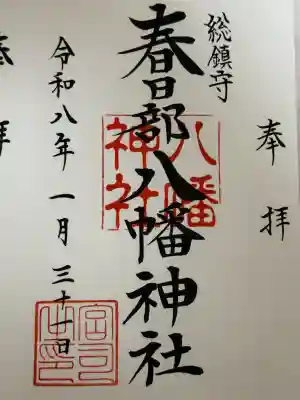 奉拝
総鎮守
春日部八幡神社
八幡神社
令和八年一月三十一日
宮司之印
拝